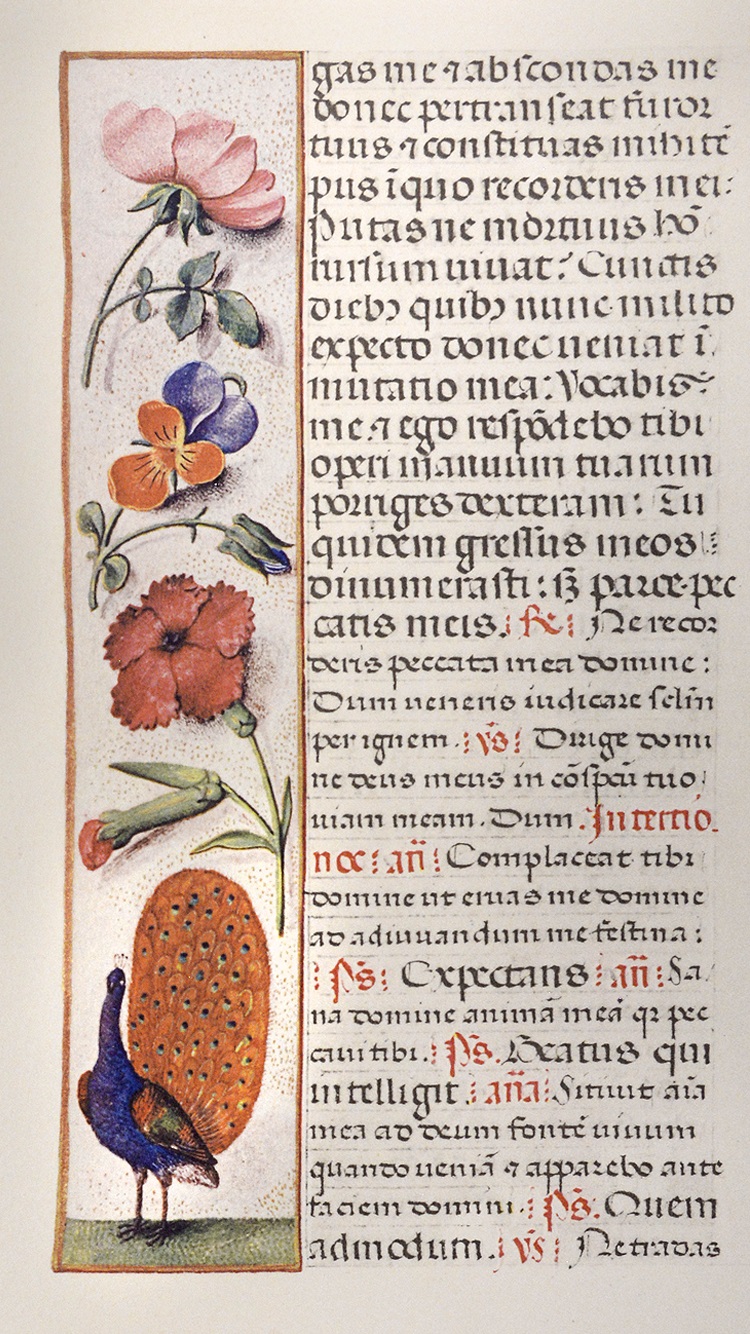 gas me ⁊ abscondas me
donec pertranseat furor
tuus ⁊ constituas mihi tē
pus īquo recorderis mei:
Putas ne mortuus hō
rursum uiuat? Cunctis
diebꝯ quibꝯ nunc milito
expecto donec ueniat ī
mutatio mea: Vocabis
me ⁊ ego respōdebo tibi
operi manuum tuarum
porriges dexteram: Tu
quidem gressus meos
dinumerasti: sꝫ parce pec
catis meis. Re: Ne recor
deris peccata mea domine:
Dum ueneris iudicare sclm̄
per ignem. v̄s: Dirige domi
ne deus meus in cōspcū tuo
uiam meam. Dum. In tertio.
noc: an̄: Complaceat tibi
domine ut eruas me domine
ad adiuuandum me festina:
Ps̄: Expectans: an̄: Sa
na domine animā meā qꝛ pec
caui tibi: Ps̄. Beatus qui
intelligit: ana: Sitiuit aīa
mea ad deum fontē uiuum
quando ueniā ⁊ apparebo ante
faciem domini. Ps̄. Quem
admodum. v̄s: Ne tradas